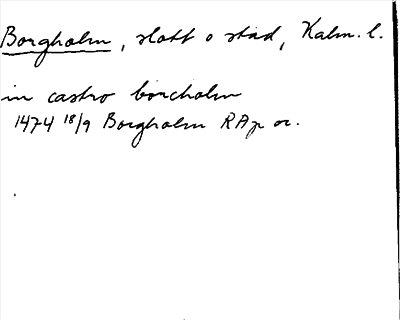 Borgholm, slott o stad, Kalm. l.
in castro borcholm
1474 18/9 Borgholm RAp or.